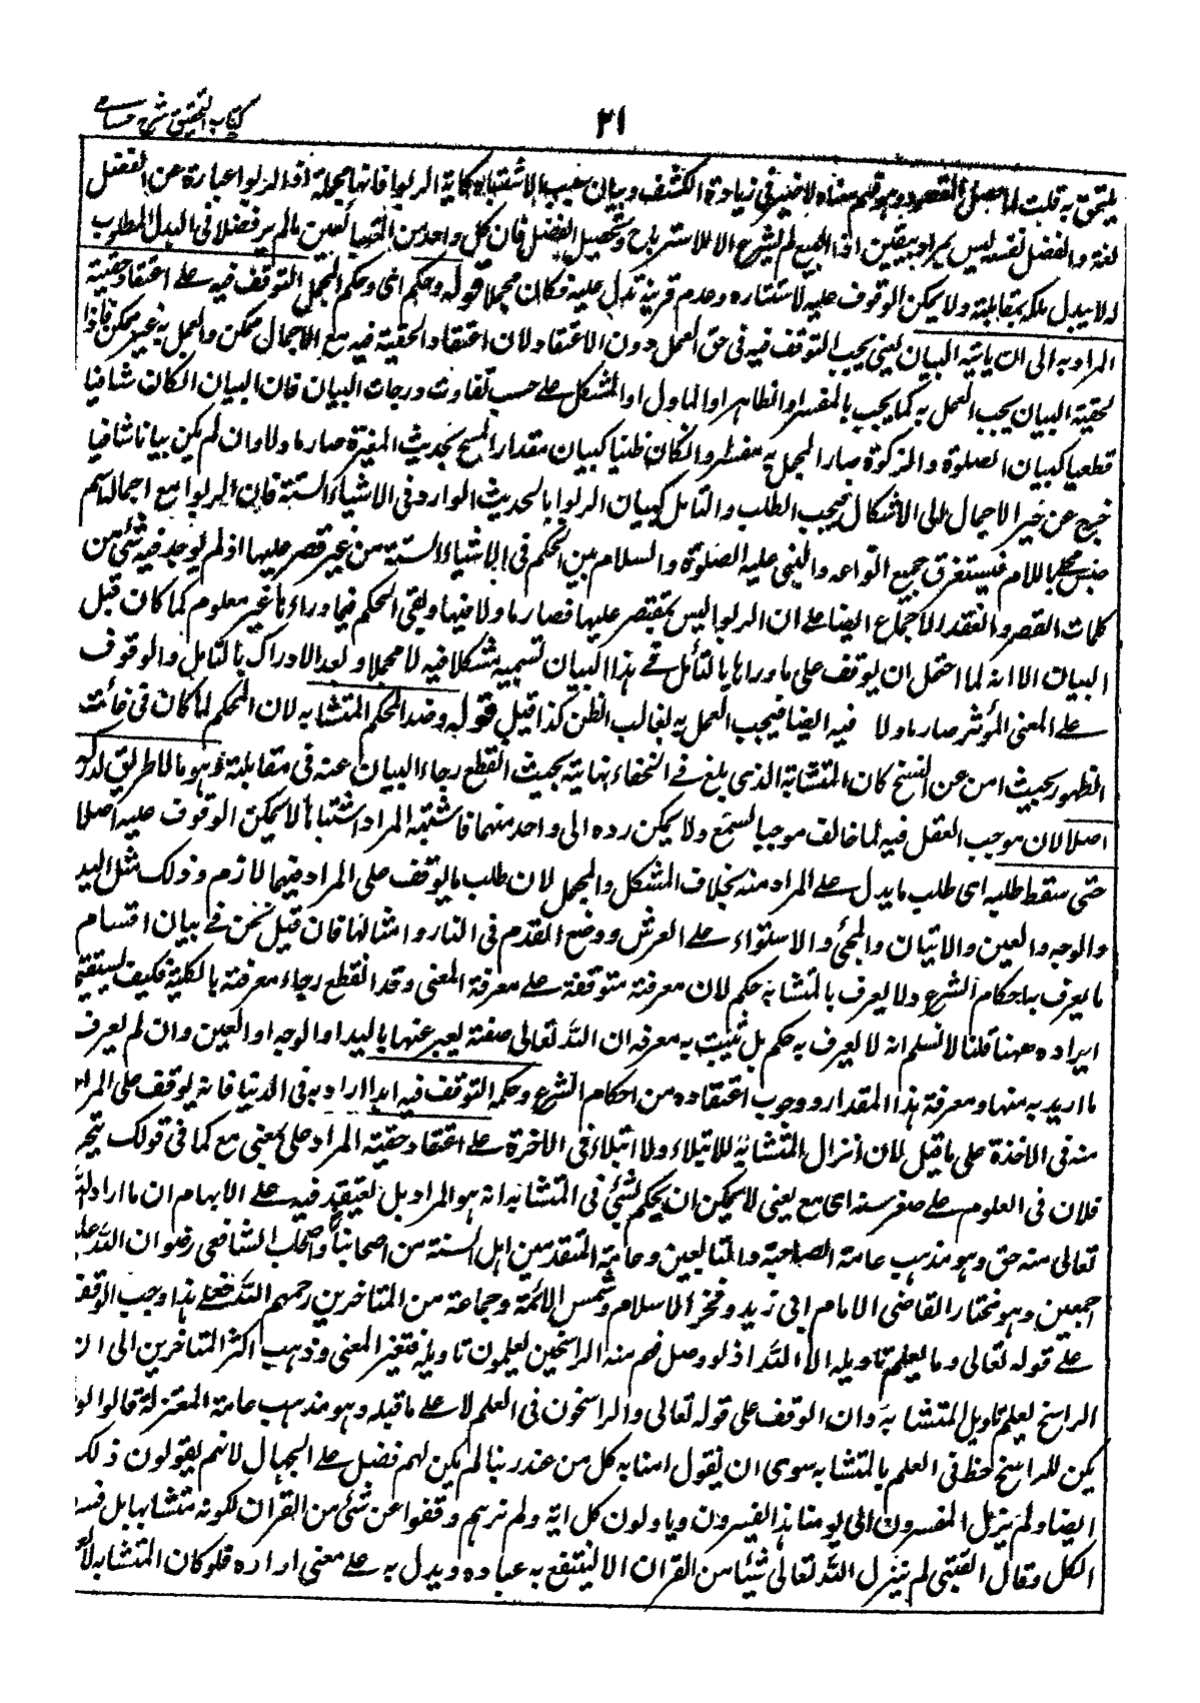 كتاب التحقيق شرح حسامے
٢١
يتحقق به قلت لما حصل المقصود وهو فهم معناه لا ضير فى زيادة الكشف وبيان سبب الاشتباه كاية الربوا فانها مجملة اذ الربوا عبارة عن الفضل
لغة والفضل نفسه ليس بمراد بيقين اذ البيع لم يشرع الا للاسترباح وتحصيل الفضل فان كل واحد من المتبايعين مالم ير فضلا فى البدل المطلوب
له لا يبدل ملكه بمقابلته ولا يمكن الوقوف عليه لاستتاره وعدم قرينة تدل عليه فكان مجملا قوله وحكمه اى وحكم المجمل التوقف فيه على اعتقاد حقية
المراد به الى ان ياتيه البيان يعنى يجب التوقف فيه فى حق العمل دون الاعتقاد لان اعتقاد الحقية فيه مع الاجمال ممكن والعمل به غير ممكن فاذا
لحقية البيان يجب العمل به كما يجب بالمفسر او الظاهر او الماول او المشكل على حسب تفاوت درجات البيان فان البيان ان كان شافيا
قطعيا كبيان الصلوة والزكوة صار المجمل به مفسرا وان كان ظنيا كبيان مقدار المسح بحديث المغيرة صار ماولا وان لم يكن بيانا شافيا
خرج عن حيز الاجمال الى الاشكال فيجب الطلب والتامل كبيان الربوا بالحديث الوارد فى الاشياء الستة فان الربوا مع اجماله اسم
جنس محلى باللام فيستغرق جميع انواعه والنبى عليه الصلوة والسلام بين الحكم فى الاشياء الستة من غير قصر عليها اذ لم يوجد فيه شئ من
كلمات القصر وانعقد الاجماع ايضا على ان الربوا ليس بمقتصر عليها فصار ماولا فيها وبقى الحكم فيما وراءها غير معلوم كما كان قبل
البيان الا انه لما احتمل ان يوقف على ما وراها بالتأمل فى هذا البيان تسميه مشكلا فيه لا مجملا وبعد الادراك بالتامل والوقوف
على المعنى المؤثر صار ماولا فيه ايضا فيجب العمل به لغالب الظن كذا قيل قوله وضد المحكم المتشابه لان المحكم لما كان فى غائت
الظهور بحيث امن عن النسخ كان المتشابه الذى بلغ فى الخفاء نهايته بحيث انقطع رجاء البيان عنه فى مقابلته وهو مالا طريق لدركه
اصلا لان موجب العقل فيه لما خالف موجب السمع ولا يمكن رده الى واحد منهما فاشتبه المراد اشتباها لا يمكن الوقوف عليه اصلا
حتى سقط طلبه اى طلب ما يدل على المراد منه بخلاف المشكل والمجمل لان طلب ما يوقف على المراد فيهما لازم وذلك مثل اليد
والوجه والعين والاتيان والمجئ والاستواء على العرش ووضع القدم فى النار وامثالها فان قيل نحن فى بيان اقسام
ما يعرف به احكام الشرع ولا يعرف بالمتشابه حكم لان معرفته متوقفة على معرفة المعنى وقد انقطع رجاء معرفته بالكلية فكيف يستقيم
ايراده ههنا قلنا لا نسلم انه لا يعرف به حكم بل تثبت به معرفه ان الله تعالى صفة يعبر عنها باليد او الوجه او العين وان لم يعرف
ما اريد به منها ومعرفة هذا المقدار ووجوب اعتقاده من احكام الشرع وحكمه التوقف فيه ابدا اراد به فى الدنيا فانه يوقف على المراد
منه فى الاخرة على ما قيل لان انزال المتشابه للابتلاء ولا ابتلاء فى الاخرة على اعتقاد حقية المراد على بمعنى مع كما فى قولك تبحر
فلان فى العلوم على صغر سنه اى مع يعنى لا يمكن ان يحكم لشئ فى المتشابه انه هو المراد بل يعتقد فيه على الابهام ان ما اراد الله
تعالى منه حق وهو مذهب عامة الصحابة والتابعين وعامة المتقدمين اهل السنة من اصحابنا واصحاب الشافعى رضوان الله عليهم
اجمعين وهو مختار القاضى الامام ابى زيد وفخر الاسلام وشمس الائمة وجماعة من المتاخرين رحمهم الله فعلى هذا وجب الوقف
على قوله تعالى وما يعلم تاويله الا الله اذ لو وصل فهم منه ان الراسخين يعلمون تاويله فتغير المعنى وذهب اكثر المتاخرين الى ان
الراسخ يعلم تاويل المتشابه وان الوقف على قوله تعالى والراسخون فى العلم لا على ما قبله وهو مذهب عامة المعتزلة قالوا لو لم
يكن للراسخ حظ فى العلم بالمتشابه سوى ان يقول امنا به كل من عند ربنا لم يكن لهم فضل على الجهال لانهم يقولون ذلك
ايضا ولم يزل المفسرون الى يومنا هذا يفسرون وياولون كل اية ولم نرهم وقفوا عن شئ من القران لكونه متشابها بل فسروا
الكل وقال القتبى لم ينزل الله تعالى شيئا من القران الا لينتفع به عباده ويدل به على معنى اراده فلو كان المتشابه لا